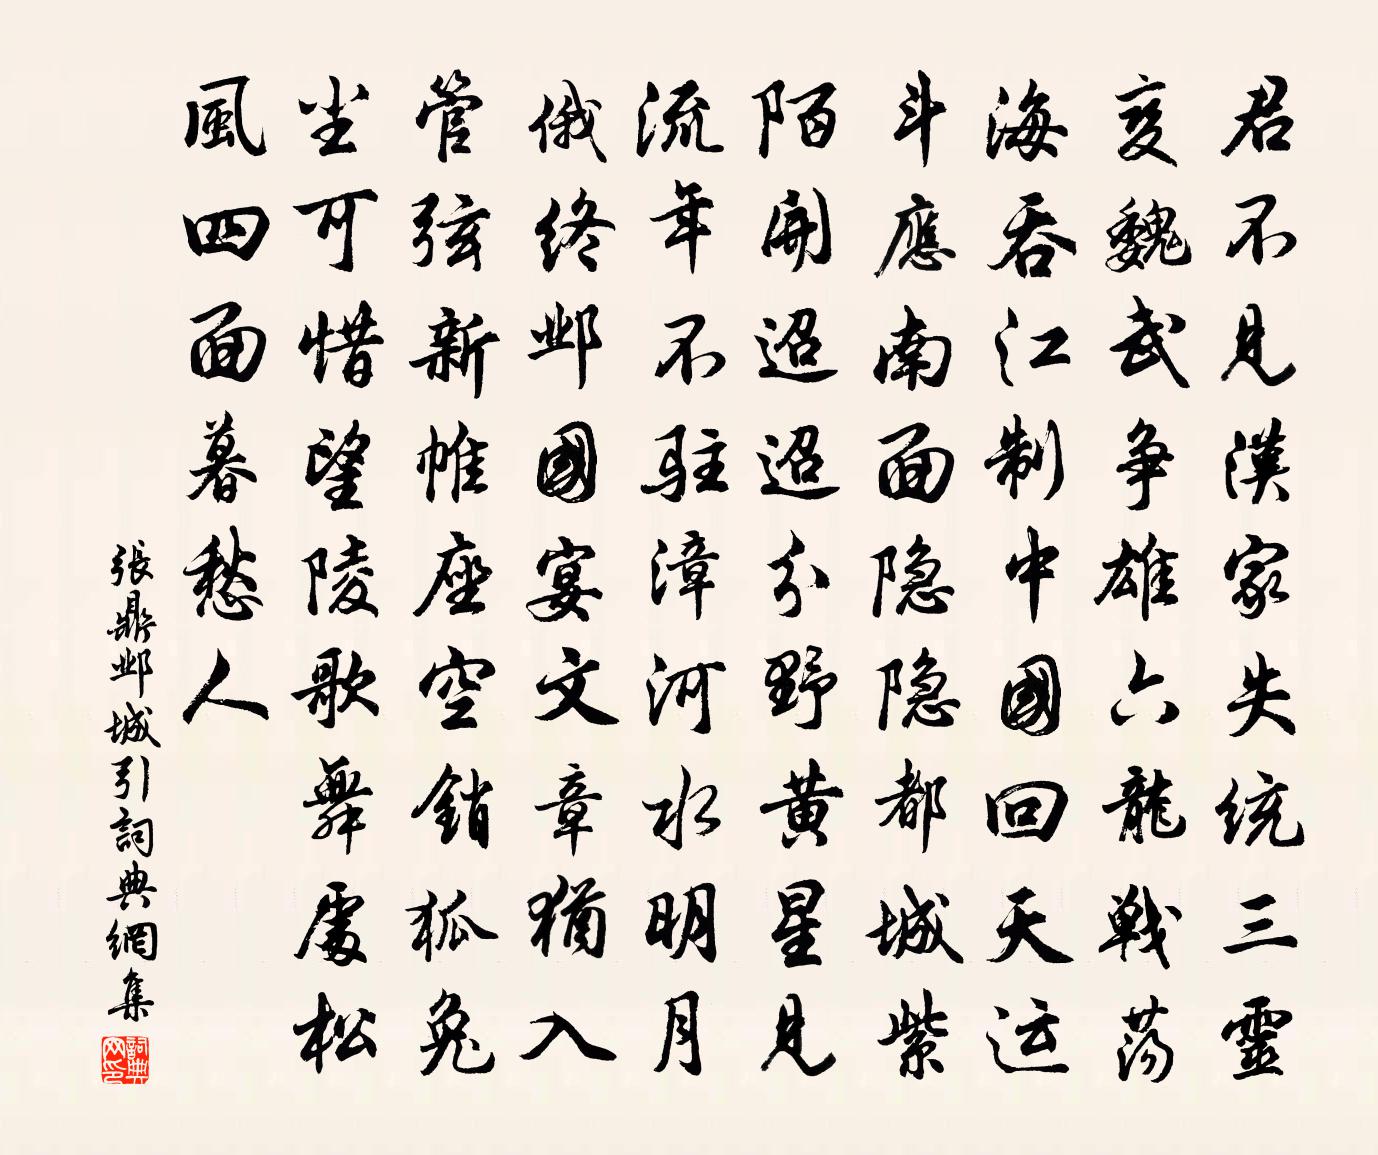 君不見漢家失統三靈
變魏武爭雄六龍戰蕩
海吞江制中國回天运
斗應南面隐隐都城紫
陌開迢迢分野黄星見
流年不駐漳河水明月
俄终邺國宴文章猶入
管弦新帷座空銷狐兔
尘可惜望陵歌舞處松
風四面暮愁人
張鼎邺城引詞典網集
詞典网印